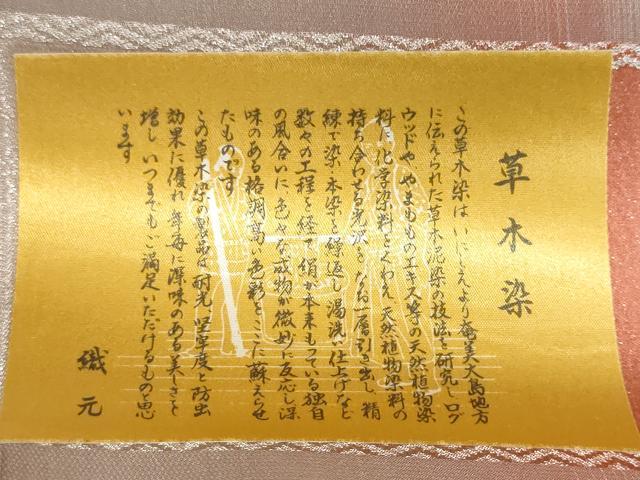 草木染
この草木染はいにしえより奄美大島地方
に伝えられた草木泥染の技法を研究しログ
ウッドややまもものエキス等の天然植物染
料に化学染料をくわえ天然植物染料の
持ち合わせる光沢をなお一層引き出し精
練で染・本染と繰返し湯洗い仕上げなど
数々の工程を経て絹が本来もっている独自
の風合いに色々な成物が微妙に反応し深
味のある格調高い色彩をここに蘇えらせ
たものです
この草木染の製品は耐光、堅牢度と防虫
効果に優れ年毎に深味のある美しさを
増しいつまでもご満足いただけるものと思
います
織元